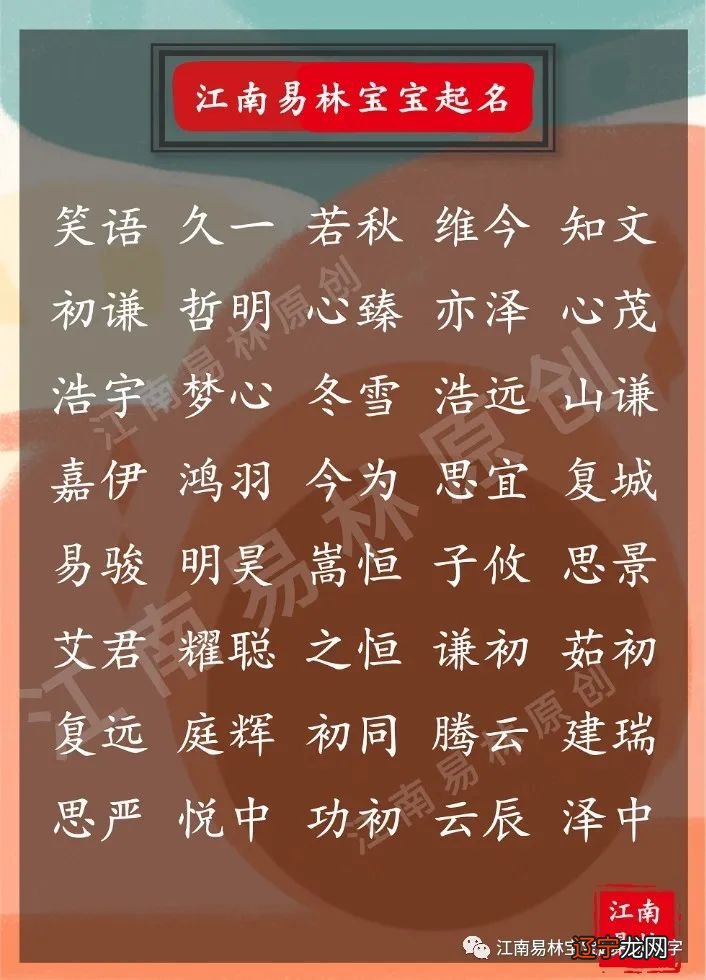 江南易林宝宝起名
笑语 久一 若秋 维今 知文
初谦 哲明 心臻 亦泽 心茂
浩宇 梦心 冬雪 浩远 山谦
嘉伊 鸿羽 今为 思宜 复城
易骏 明昊 嵩恒 子攸 思景
艾君 耀聪 之恒 谦初 茹初
复远 庭辉 初同 腾云 建瑞
思严 悦中 功初 云辰 泽中
江南易林原创
江南易林原创
江南易林原创
江南
江南易林宝
字
辽宁龙网